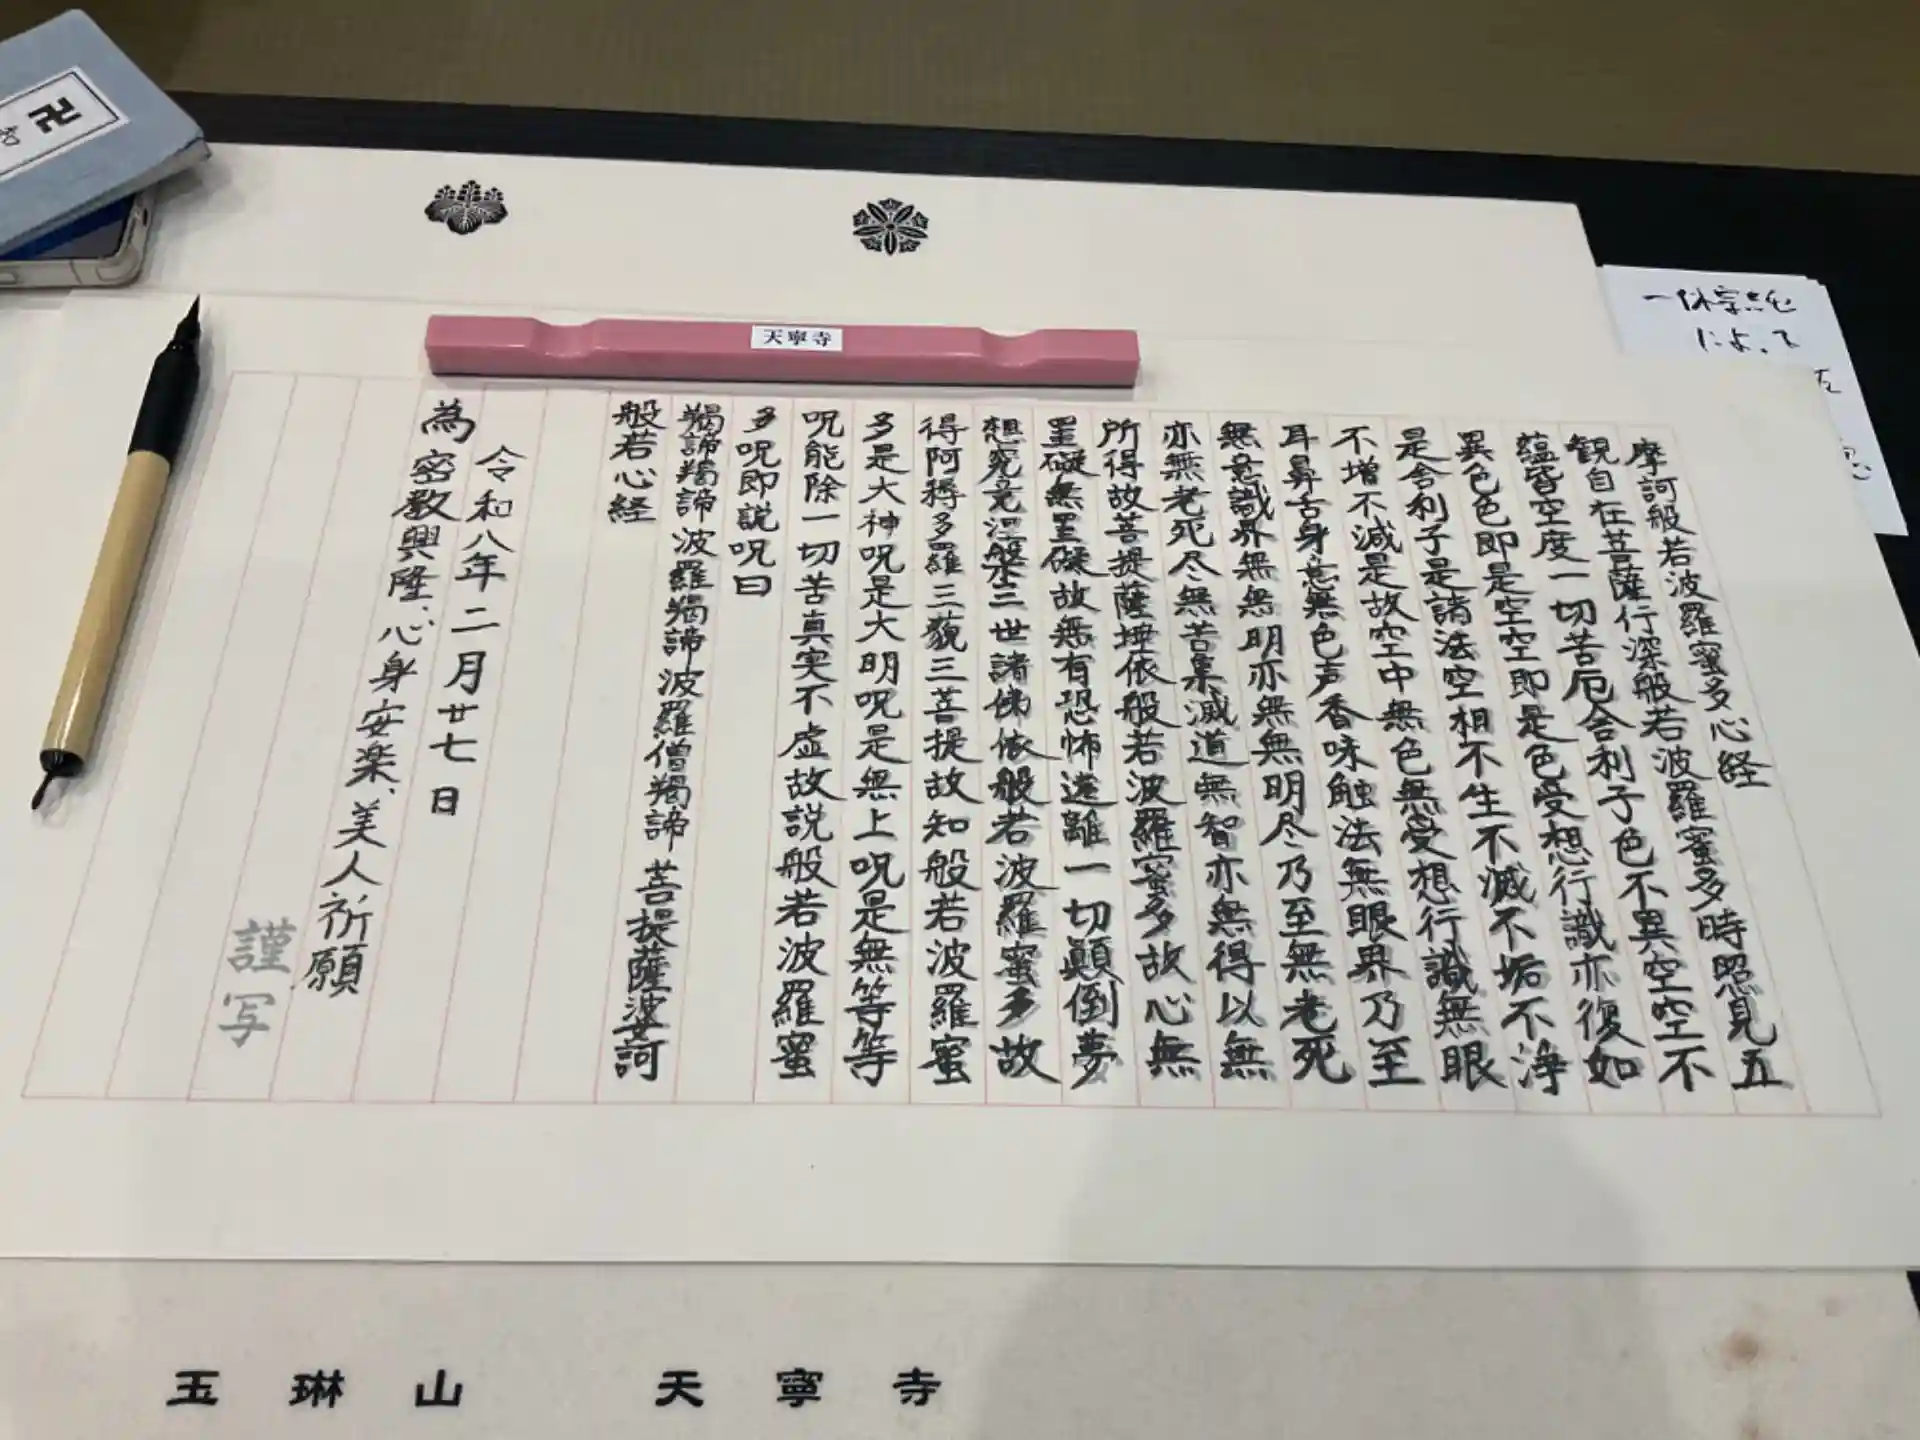 摩訶般若波羅蜜多心経
観自在菩薩行深般若波羅蜜多時照見五
蘊皆空度一切苦厄舎利子色不異空空不
異色色即是空空即是色受想行識亦復如
是舎利子是諸法空相不生不滅不垢不浄
不増不減是故空中無色無受想行識無眼
耳鼻舌身意無色声香味触法無眼界乃至
無意識界無無明亦無無明尽乃至無老死
亦無老死尽無苦集滅道無智亦無得以無
所得故菩提薩埵依般若波羅蜜多故心無
罣礙無罣礙故無有恐怖遠離一切顛倒夢
想究竟涅槃三世諸佛依般若波羅蜜多故
得阿耨多羅三藐三菩提故知般若波羅蜜
多是大神呪是大明呪是無上呪是無等等
呪能除一切苦真実不虚故説般若波羅蜜
多呪即説呪曰
羯諦羯諦波羅羯諦波羅僧羯諦菩提薩婆訶
般若心経
令和八年二月廿七日
為密教興隆、心身安楽、美人祈願
謹写
天寧寺
玉琳山 天寧寺
一休宗純
によって
卍